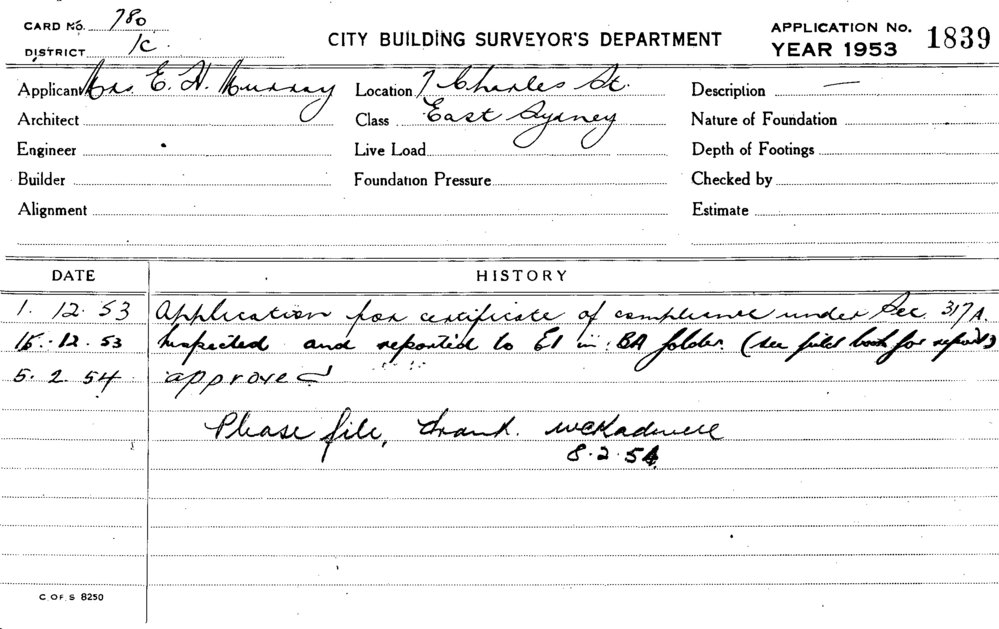 CARD No. 780
DISTRICT 1C.
CITY BUILDING SURVEYOR'S DEPARTMENT
APPLICATION No. 1839
YEAR 1953
Applicant Mrs E. H. Murray Location 7 Charles St. Description —
Architect Class East Sydney Nature of Foundation
Engineer Live Load Depth of Footings
Builder Foundation Pressure Checked by
Alignment Estimate
DATE HISTORY
1. 12. 53 Application for certificate of compliance under Sec. 317A.
15. 12. 53 Inspected and reported to E1 in BA folder. (see field book for report)
5. 2. 54 approved
Please file,
8.2.54
C. OF. S 8250